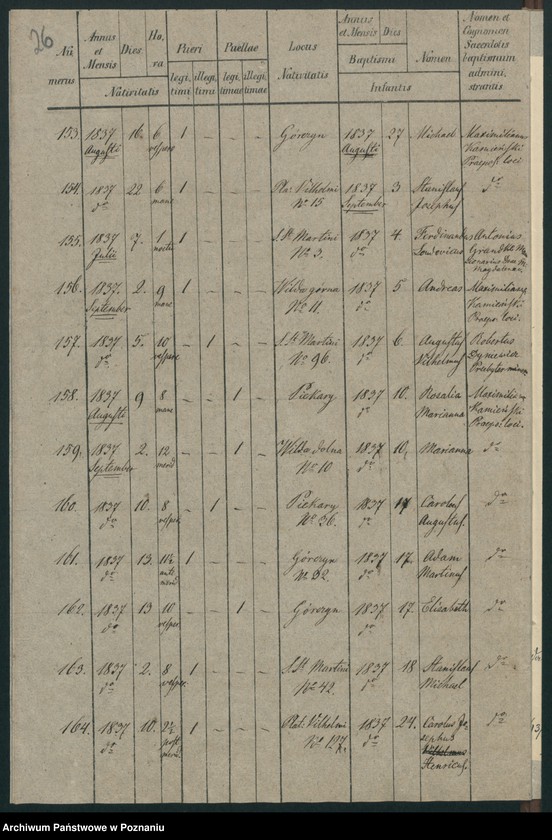 26
Nu merus | Annus et Mensis | Dies | Ho, ra | Pueri | Puellae | Locus Nativitatis | Annus et Mensis | Dies | Nomen | Nomen et Cognomen Sacerdotis baptismum admini, strantis
Nativitatis | legi, timi | illegi, timi | legi, timae | illegi, timae | Baptismi | Infantis
153. | 1837 Augusti | 16. | 6 vespere | 1 | – | – | – | Górczyn | 1837 Augusti | 27 | Michael | Maximilianus Kamieński Praeps: loci
154. | 1837 do | 22 | 6 mane | 1 | – | – | – | Pla: Vilhelmi No 15 | 1837 September | 3 | Stanislaus Josephus | do
155. | 1837 Julii | 7. | 1 noctis | 1 | – | – | – | S. St Martini No 3. | 1837 do | 4. | Ferdinandus Ludovicus | Antonius
156. | 1837. September | 2. | 9 mane | 1 | – | – | – | Wilda górna No 11. | 1837 do | 5 | Andreas | Maximilianus Kamieński Praeps: loci.
157. | 1837 do | 5. | 10 vespere | – | 1 | – | – | S. St Martini No 96. | 1837 do | 6. | Augustus Vilhelmus | Robertus
158. | 1837 Augusti | 9 | 8 mane | – | – | 1 | – | Piekary | 1837 do | 10. | Rosalia Marianna | Maximilianus Kamieński Praeps: loci.
159. | 1837 September | 2. | 12 merid | – | – | 1 | – | Wilda dolna No 10 | 1837 do | 10, | Marianna | do
160. | 1837 do | 10. | 8 vesper. | – | 1 | – | – | Piekary No 36. | 1837 do | 17 | Carolus Augustus. | do
161. | 1837 do | 13. | 10½ ante merid | 1 | – | – | – | Górczyn No 22. | 1837 do | 17. | Adam Martinus | do
162. | 1837 do | 13 | 10 vesper. | – | – | 1 | – | Górczyn | 1837 do | 17. | Elisabeth | do
163. | 1837 do | 2. | 8 vesper. | 1 | – | – | – | S. St Martini No 42. | 1837 do | 18. | Stanislaus Michael | do
164. | 1837 do | 10. | 2½ post merid | 1 | – | – | – | Plat: Vilhelmi No 127. | 1837 do | 24. | Carolus Jo, sephus Henricus. | do
Archiwum Państwowe w Poznaniu